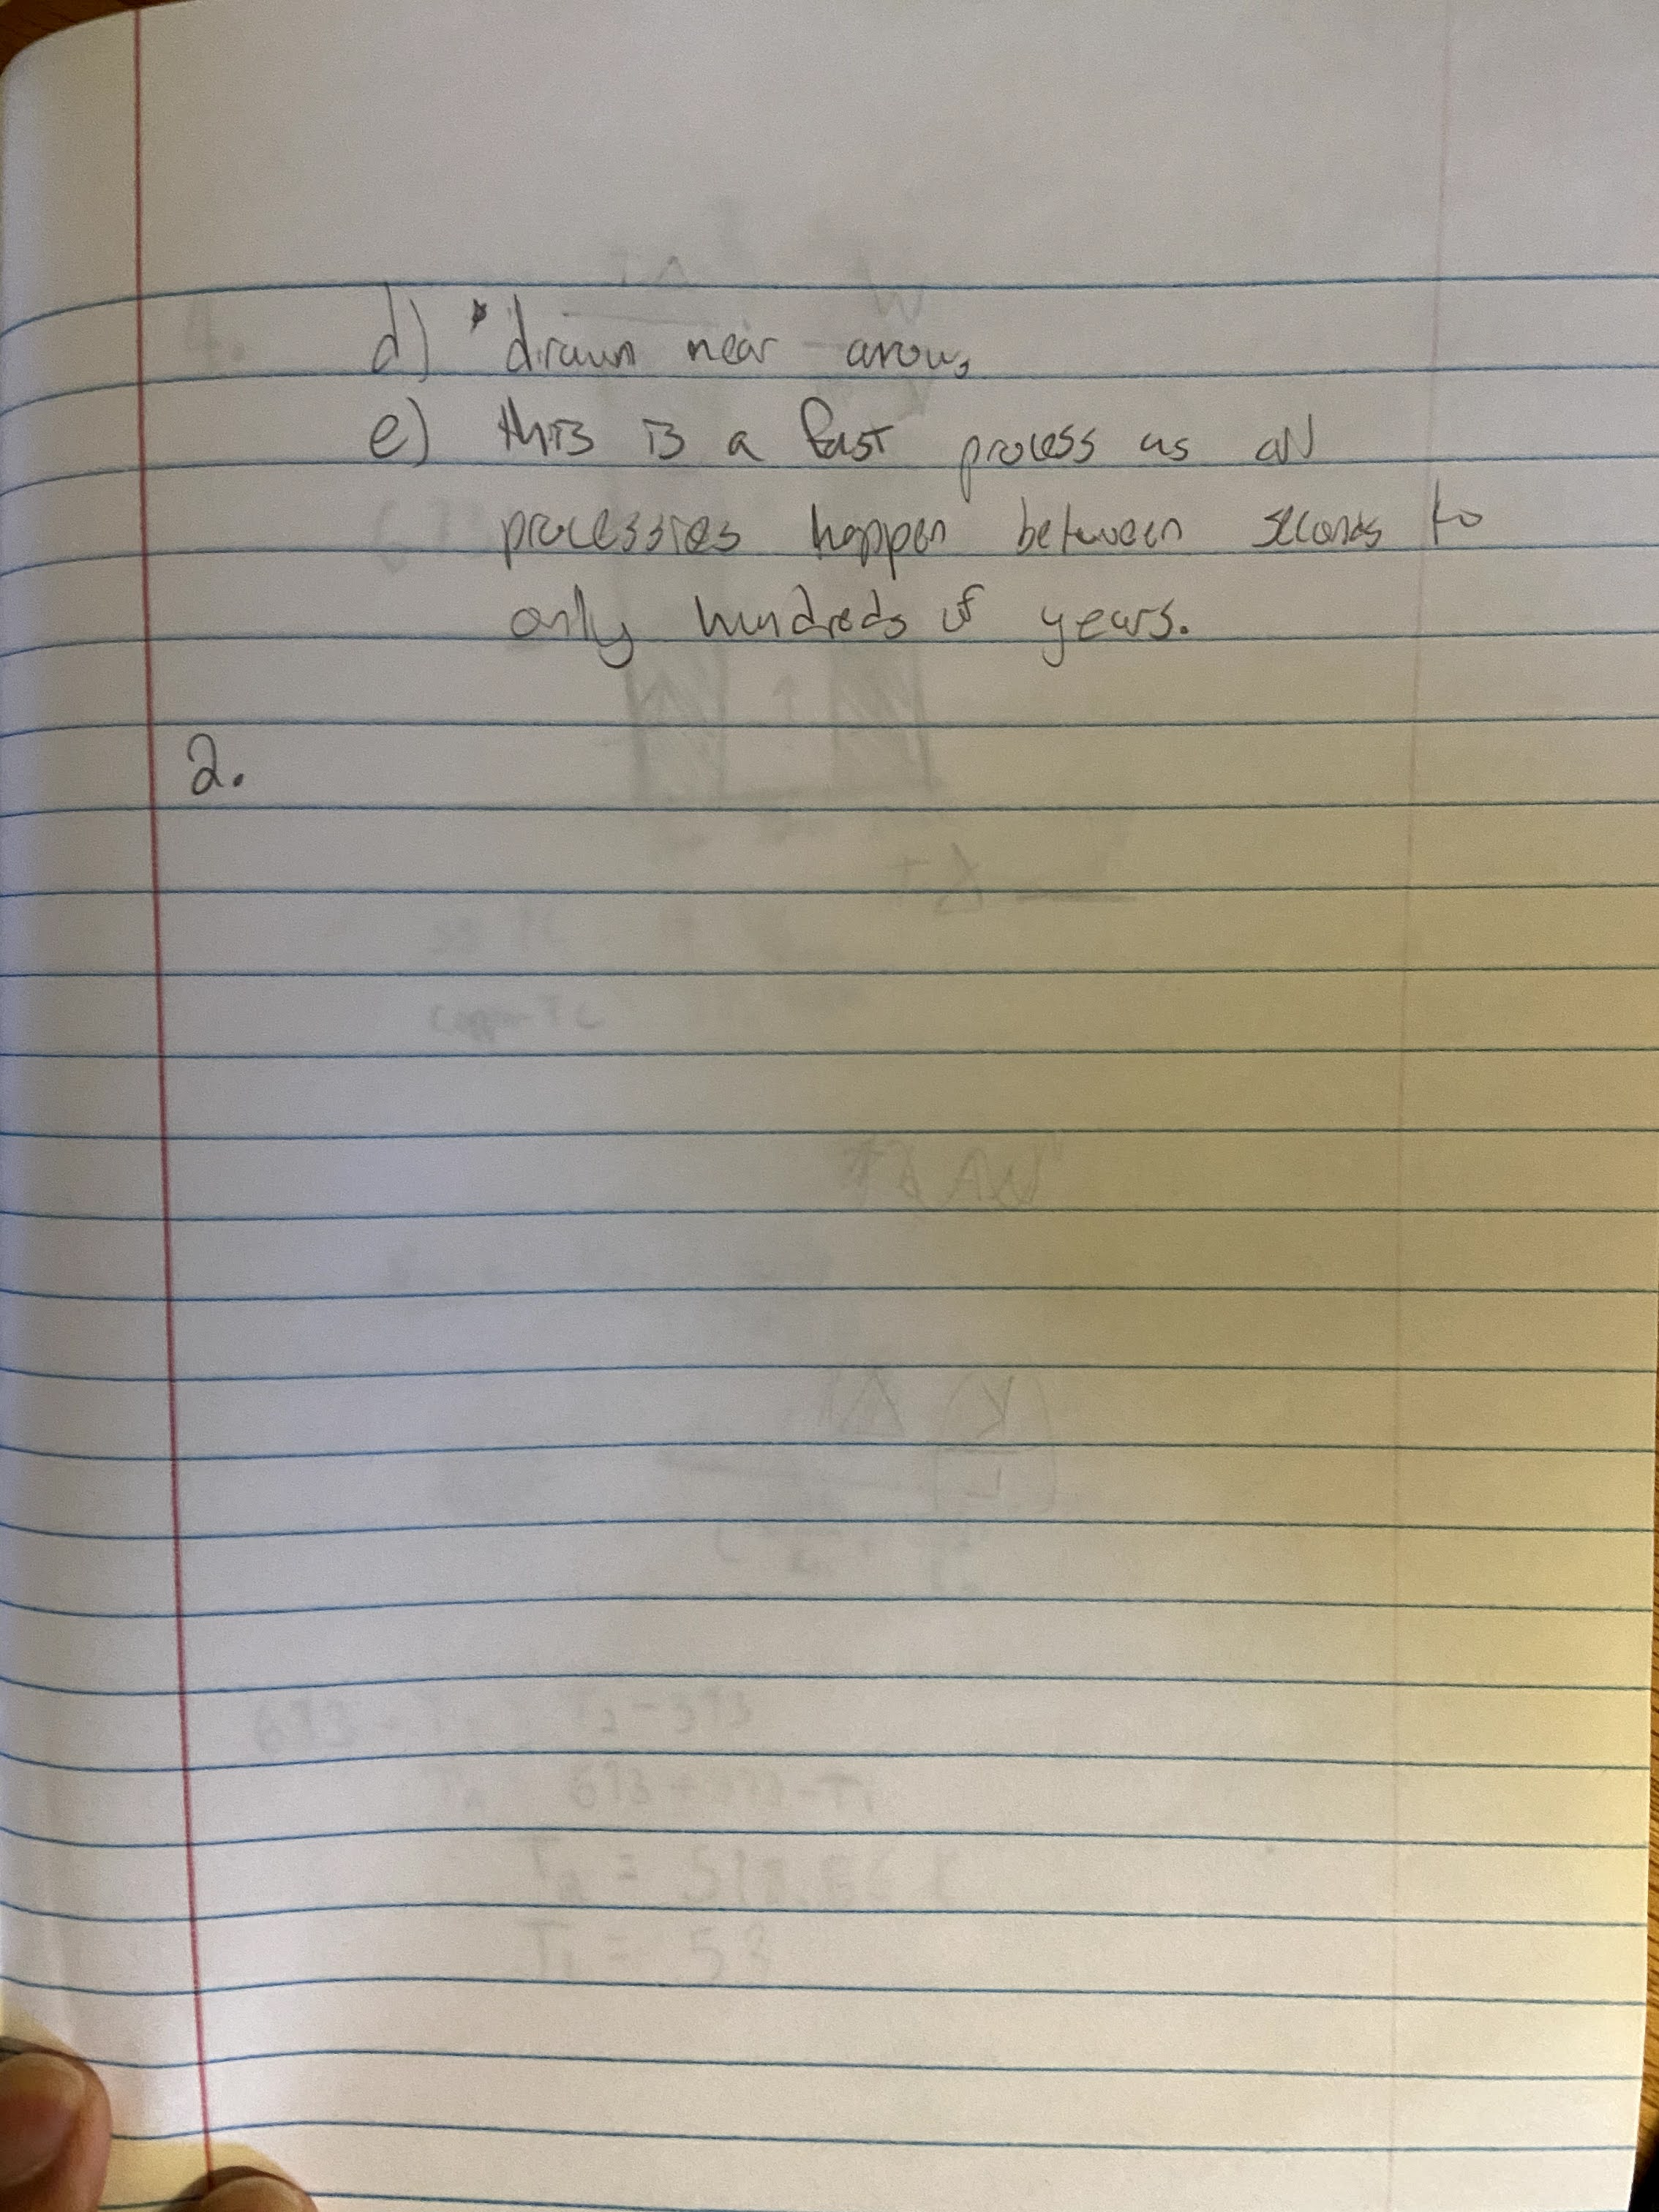 d) *drawn near arrows
e) this is a fast process as all
processies happen between seconds to
only hundreds of years.
2.